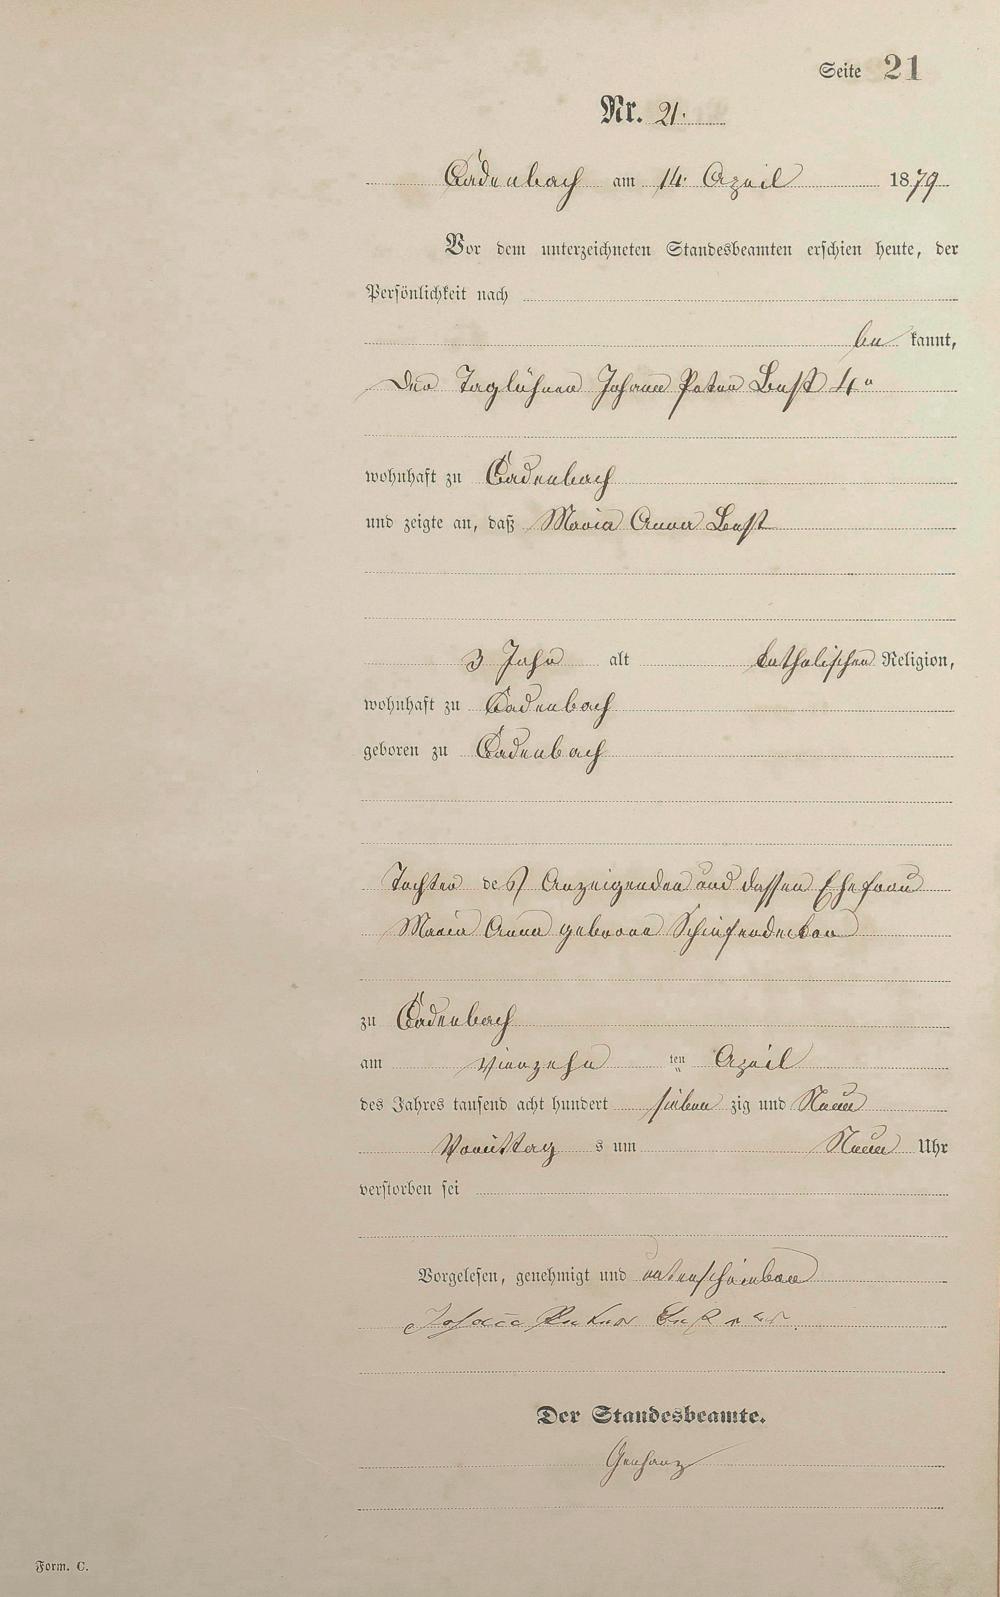 Seite 21
Nr. 21.
Cadenbach am 14. April 1879
Vor dem unterzeichneten Standesbeamten erschien heute, der
Persönlichkeit nach
be kannt,
Der Taglöhner Johann Peter Best 4r
wohnhaft zu Cadenbach
und zeigte an, daß Maria Anna Best
3 Jahr alt katholischer Religion,
wohnhaft zu Cadenbach
geboren zu Cadenbach
Tochter des Anzeigenden und dessen Ehefrau
Maria Anna geborene
zu Cadenbach
am vierzehn ten April
des Jahres tausend acht hundert sieben zig und Neun
Vormittag s um Neun Uhr
verstorben sei
Vorgelesen, genehmigt und unterschrieben
Johann Peter Best
Der Standesbeamte.
Gerharz
Form. C.